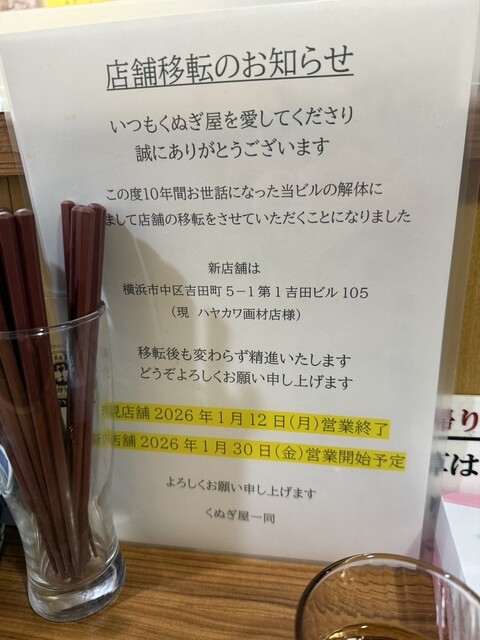 店舗移転のお知らせ
いつもくぬぎ屋を愛してくださり
誠にありがとうございます
この度10年間お世話になった当ビルの解体に
まして店舗の移転をさせていただくことになりました
新店舗は
横浜市中区吉田町5−1第1吉田ビル105
(現 ハヤカワ画材店様)
移転後も変わらず精進いたします
どうぞよろしくお願い申し上げます
現店舗 2026年1月12日(月)営業終了
店舗 2026年1月30日(金)営業開始予定
よろしくお願い申し上げます
くぬぎ屋一同
り
は